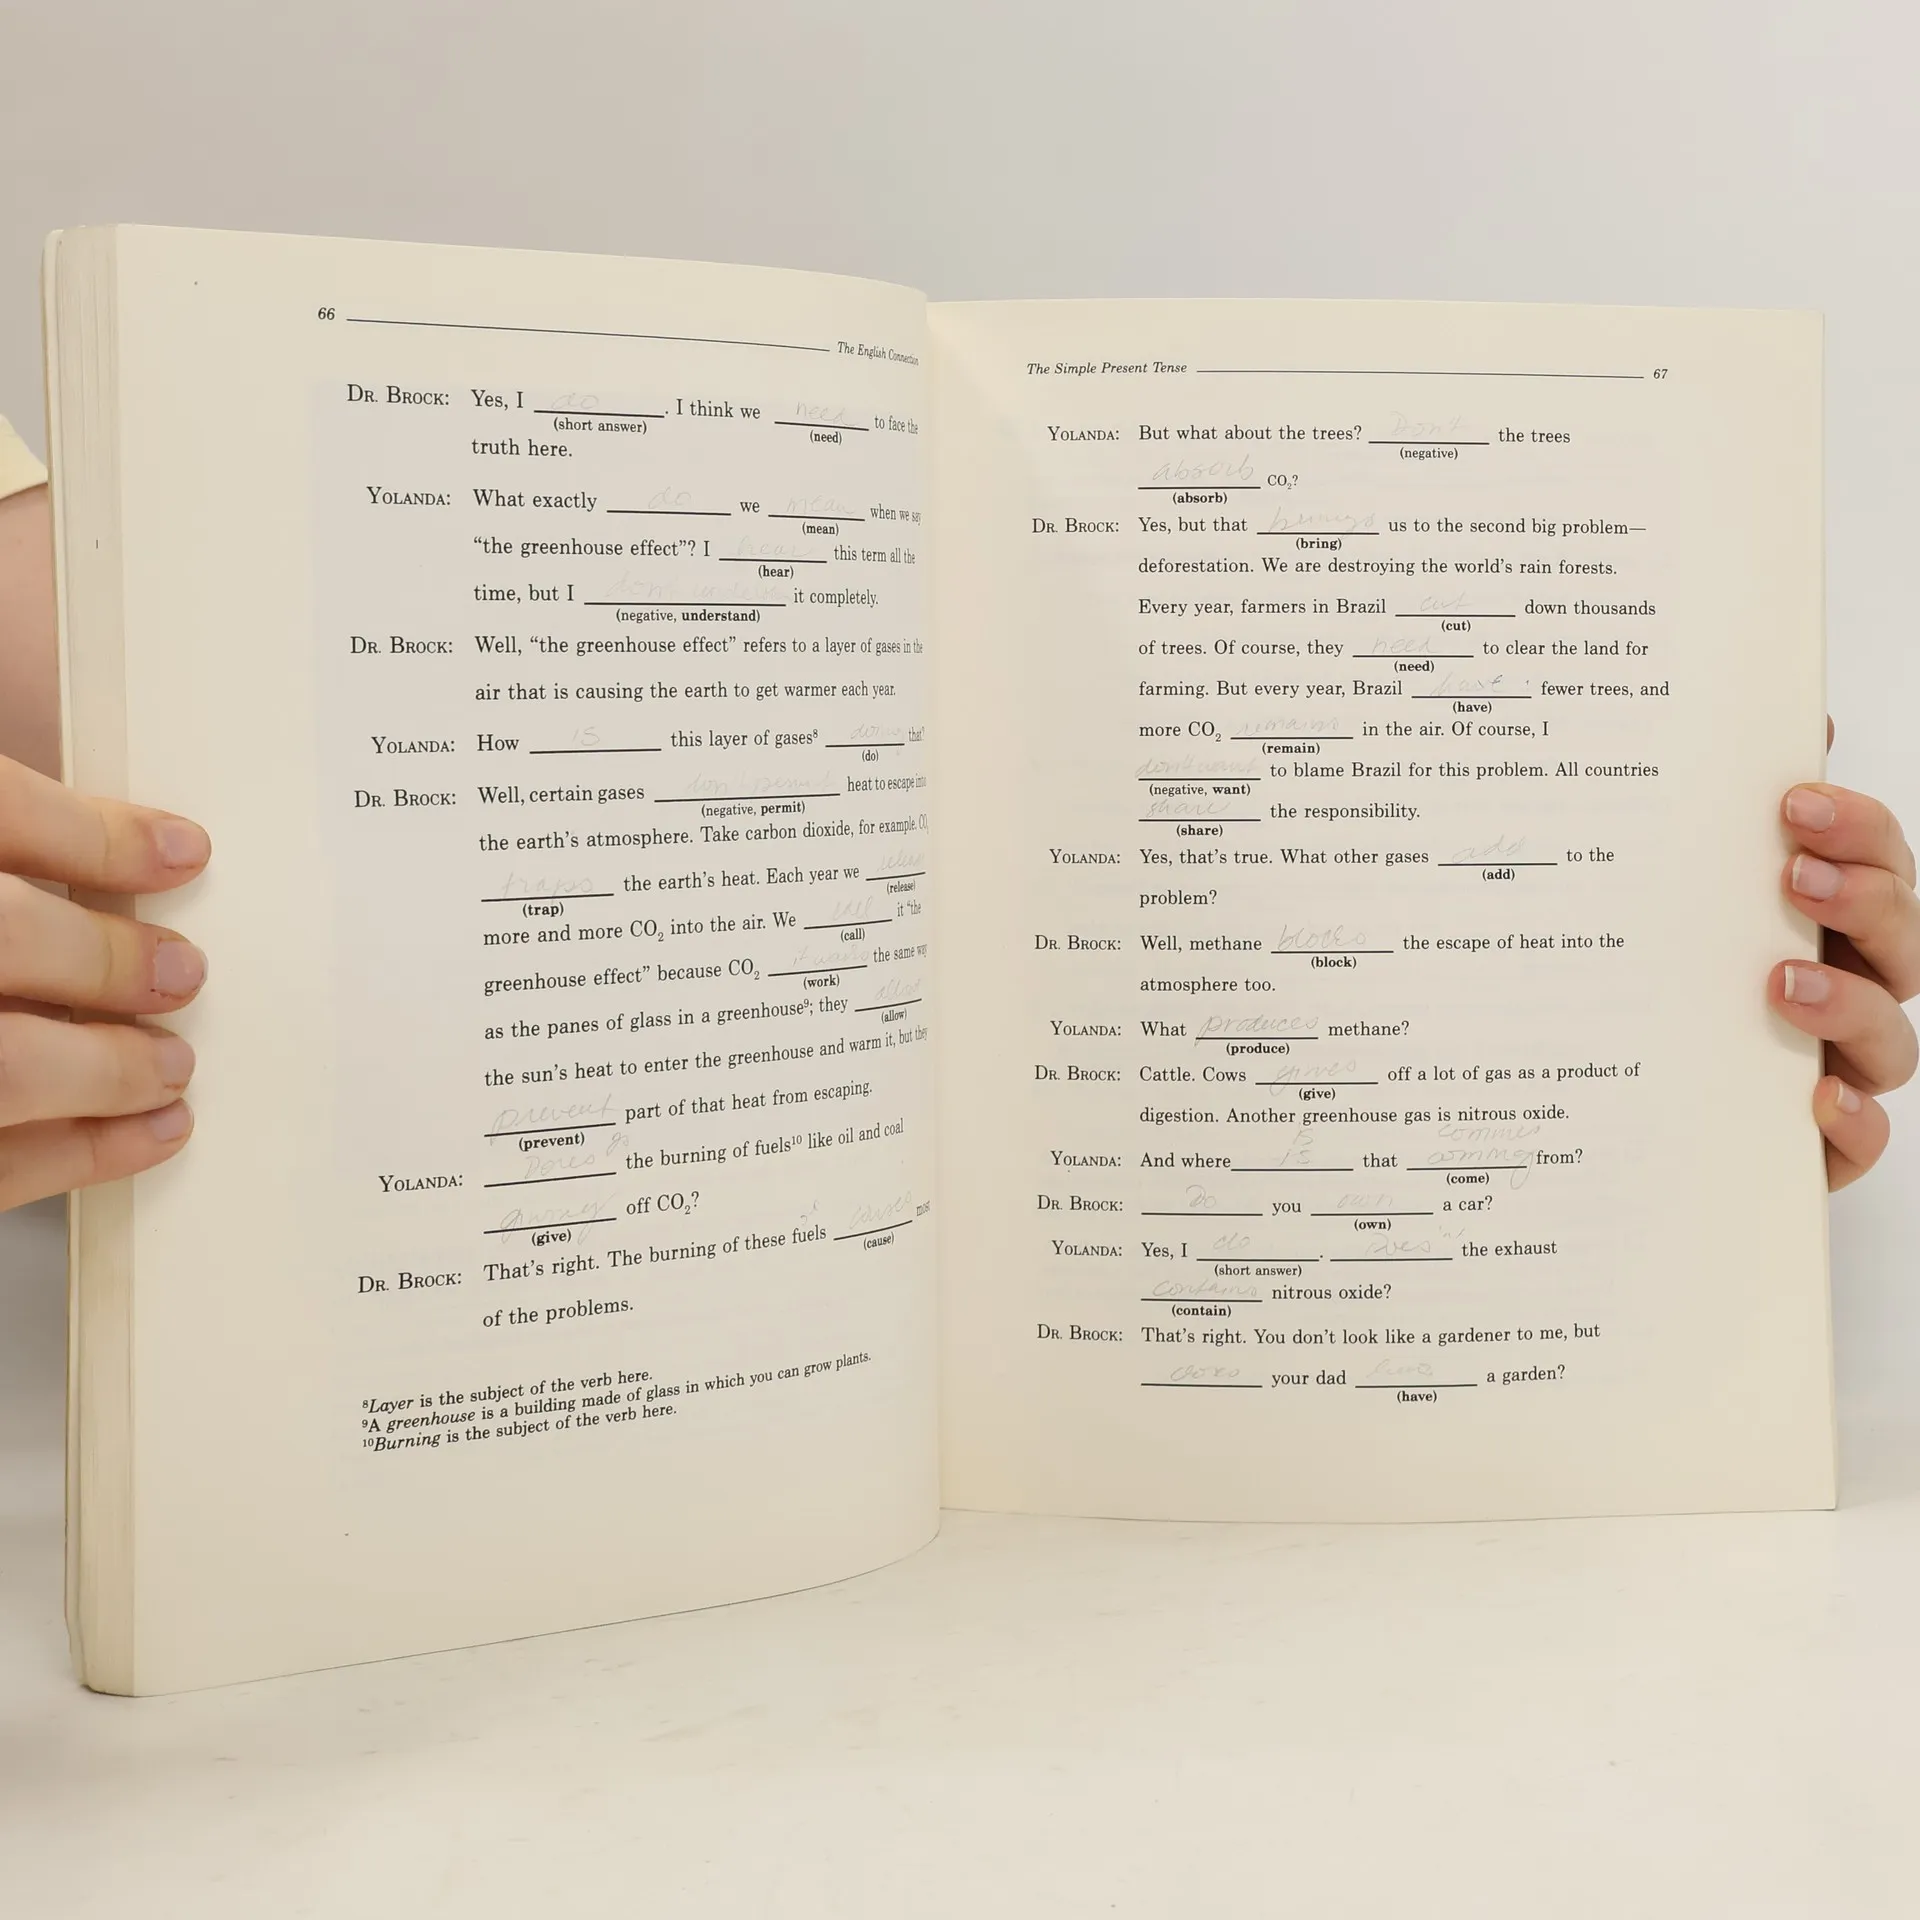 66
The English Connection
DR. BROCK: Yes, I do. I think we need to face the
(short answer) (need)
truth here.
YOLANDA: What exactly do we mean when we say
(mean)
“the greenhouse effect”? I hear this term all the
(hear)
time, but I don't understand it completely.
(negative, understand)
DR. BROCK: Well, “the greenhouse effect” refers to a layer of gases in the
air that is causing the earth to get warmer each year.
YOLANDA: How is this layer of gases⁸ doing that?
(do)
DR. BROCK: Well, certain gases don't permit heat to escape into
(negative, permit)
the earth's atmosphere. Take carbon dioxide, for example. CO₂
traps the earth's heat. Each year we release
(trap) (release)
more and more CO₂ into the air. We call it “the
(call)
greenhouse effect” because CO₂ it works the same way
(work)
as the panes of glass in a greenhouse⁹; they allow
(allow)
the sun's heat to enter the greenhouse and warm it, but they
prevent part of that heat from escaping.
(prevent)
YOLANDA: Does the burning of fuels¹⁰ like oil and coal
off CO₂?
(give)
DR. BROCK: That's right. The burning of these fuels causes most
(cause)
of the problems.
⁸Layer is the subject of the verb here.
⁹A greenhouse is a building made of glass in which you can grow plants.
¹⁰Burning is the subject of the verb here.
The Simple Present Tense 67
YOLANDA: But what about the trees? Don't the trees
(negative)
absorb CO₂?
(absorb)
DR. BROCK: Yes, but that brings us to the second big problem—
(bring)
deforestation. We are destroying the world's rain forests.
Every year, farmers in Brazil cut down thousands
(cut)
of trees. Of course, they need to clear the land for
(need)
farming. But every year, Brazil have fewer trees, and
(have)
more CO₂ remains in the air. Of course, I
(remain)
don't want to blame Brazil for this problem. All countries
(negative, want)
share the responsibility.
(share)
YOLANDA: Yes, that's true. What other gases add to the
(add)
problem?
DR. BROCK: Well, methane blocks the escape of heat into the
(block)
atmosphere too.
YOLANDA: What produces methane?
(produce)
DR. BROCK: Cattle. Cows gives off a lot of gas as a product of
(give)
digestion. Another greenhouse gas is nitrous oxide.
is commes
YOLANDA: And where is that coming from?
(come)
DR. BROCK: Do you own a car?
(own)
YOLANDA: Yes, I do. Does'nt the exhaust
(short answer)
contains nitrous oxide?
(contain)
DR. BROCK: That's right. You don't look like a gardener to me, but
does your dad a garden?
(have)